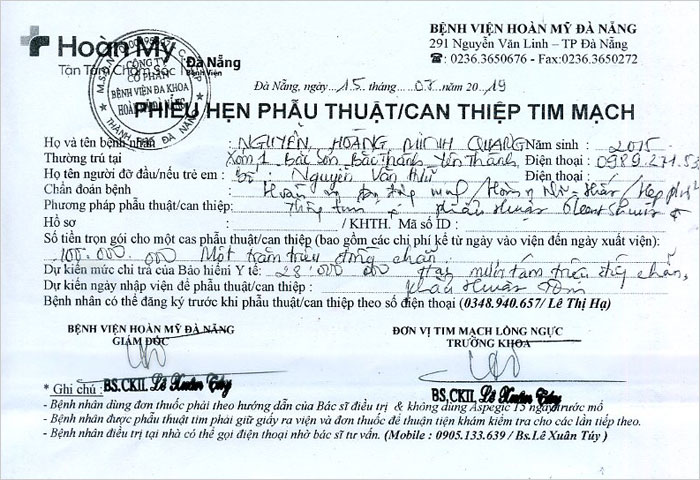 Hoàn Mỹ
Đà Nẵng
Bệnh Viện
Tận Tâm Chăm Sóc
CÔNG TY
CỔ PHẦN
BỆNH VIỆN ĐA KHOA
HOÀN MỸ ĐÀ NẴNG
THÀNH PHỐ ĐÀ NẴNG
BỆNH VIỆN HOÀN MỸ ĐÀ NẴNG
291 Nguyễn Văn Linh – TP Đà Nẵng
☎: 0236.3650676 - Fax:0236.3650272
Đà Nẵng, ngày 15 tháng 08 năm 2019
PHIẾU HẸN PHẪU THUẬT/CAN THIỆP TIM MẠCH
Họ và tên bệnh nhân : NGUYỄN HOÀNG MINH QUANG Năm sinh : 2015
Thường trú tại : Xóm 1 Bắc Sơn, Bắc Thành Yên Thành Điện thoại : 0989.271.53
Họ tên người đỡ đầu/nếu trẻ em : Bố : Nguyễn Văn Điện thoại :
Chẩn đoán bệnh :
Phương pháp phẫu thuật/can thiệp: Thông tim phẫu thuật
Hồ sơ : / KHTH. Mã số ID :
Số tiền trọn gói cho một cas phẫu thuật/can thiệp (bao gồm các chi phí kể từ ngày vào viện đến ngày xuất viện):
100.000.000 Một trăm triệu đồng chẵn.
Dự kiến mức chi trả của Bảo hiểm Y tế: 28.000.000 Hai mươi tám triệu đồng chẵn,
Dự kiến ngày nhập viện để phẫu thuật/can thiệp : phẫu thuật
Bệnh nhân có thể đăng ký trước khi phẫu thuật/can thiệp theo số điện thoại (0348.940.657/ Lê Thị Hạ)
BỆNH VIỆN HOÀN MỸ ĐÀ NẴNG
GIÁM ĐỐC
ĐƠN VỊ TIM MẠCH LỒNG NGỰC
TRƯỞNG KHOA
BS.CKII. Lê Xuân Túy
BS.CKII. Lê Xuân Túy
* Ghi chú :
- Bệnh nhân dùng đơn thuốc phải theo hướng dẫn của Bác sĩ điều trị & không dùng Aspegic 15 ngày trước mổ
- Bệnh nhân được phẫu thuật tim phải giữ giấy ra viện và đơn thuốc để thuận tiện khám kiểm tra cho các lần tiếp theo.
- Bệnh nhân điều trị tại nhà có thể gọi điện thoại nhờ bác sĩ tư vấn. (Mobile : 0905.133.639 / Bs.Lê Xuân Túy )